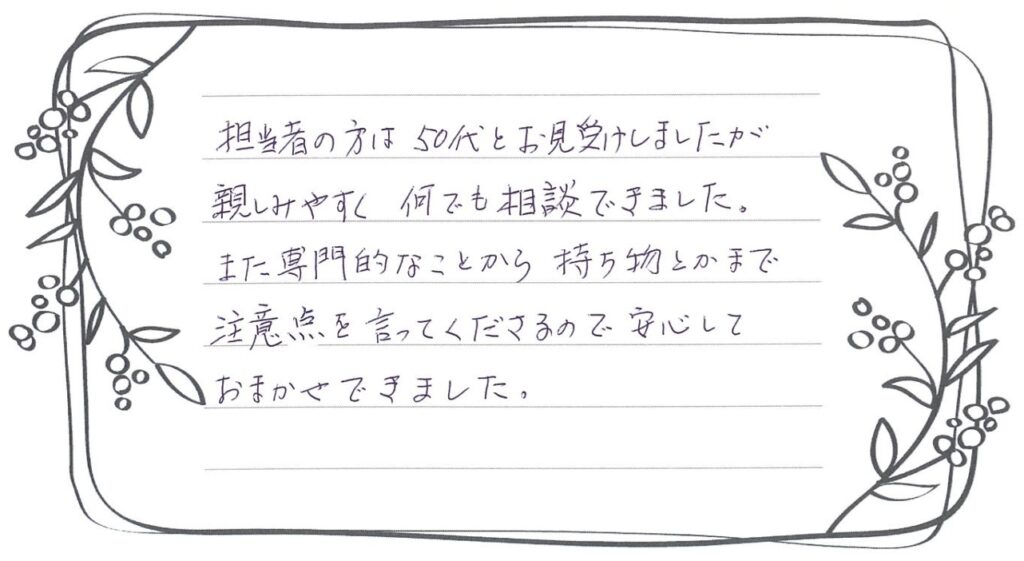 担当者の方は 50代とお見受けしましたが
親しみやすく 何でも相談できました。
また専門的なことから 持ち物とかまで
注意点を言ってくださるので 安心して
おまかせできました。